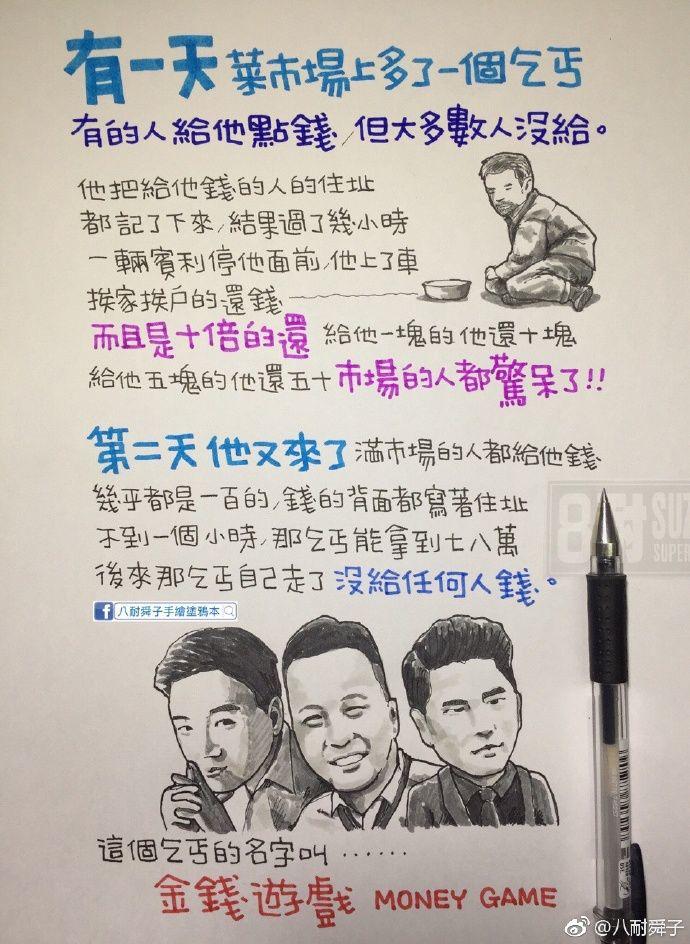 有一天菜市場上多了一個乞丐
有的人給他點錢/但大多數人沒給。
他把給他錢的人的住址
都記了下來/結果過了幾小時
一輛賓利停他面前/他上了車
挨家挨戶的還錢
而且是十倍的還 給他一塊的他還十塊
給他五塊的他還五十市場的人都驚呆了!!
第二天他又來了滿市場的人都給他錢
幾乎都是一百的/錢的背面都寫著住址
不到一個小時/那乞丐能拿到七八萬
後來那乞丐自己走了沒給任何人錢。
f 八耐舜子手繪塗鴉本
8耐 SUZ
SUPER
這個乞丐的名字叫……
金錢遊戲 MONEY GAME
@八耐舜子